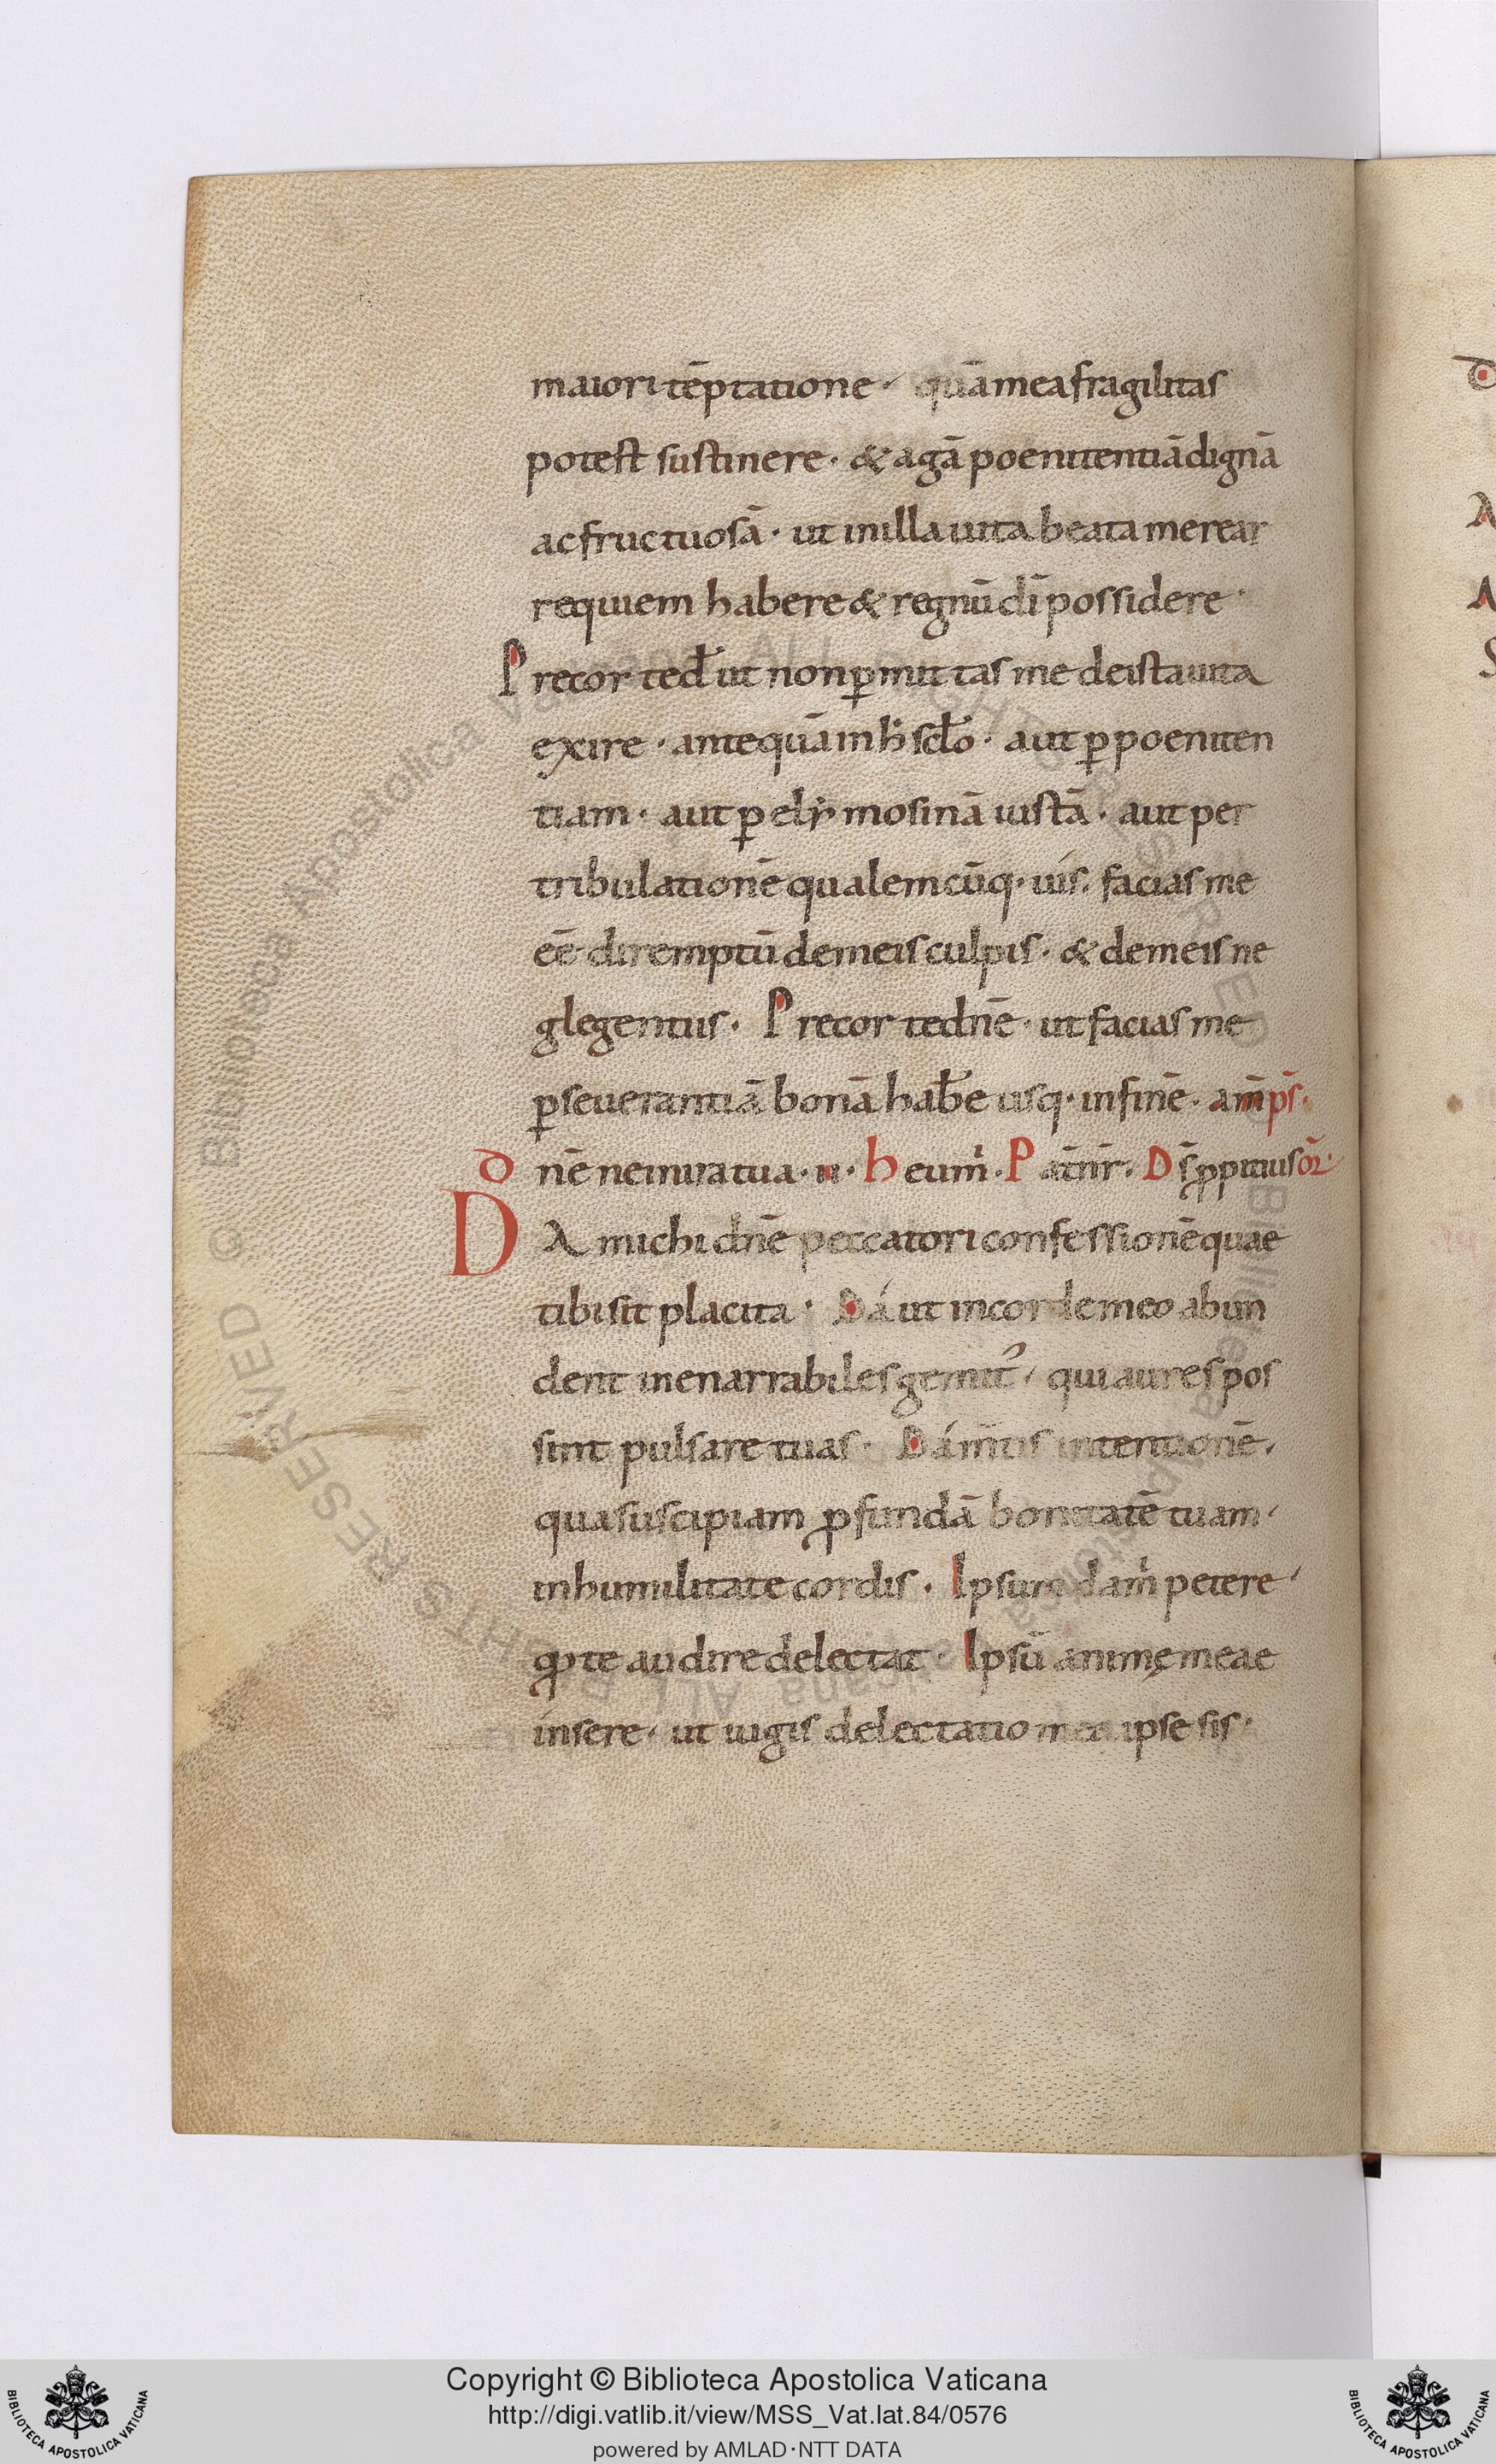 maiori tēptatione quā mea fragilitas
potest sustinere · & agā poenitentiā dignā
ac fructuosā · ut in illa uita beata merear
requiem habere & regnū dī possidere ·
Precor te dѕ̄ ut non ꝑmittas me de ista uita
exire · antequā in h̄ sc̄lo · aut ꝑ poeniten
tiam · aut ꝑ elymosinā iustā · aut per
tribulationē qualemcūq· uis. facias me
eē diremptū de meis culpis · & de meis ne
glegentiis · Precor te dn̄e · ut facias me
ꝑseuerantiā bonā habē usq· in finē · am̄ ps̄ ·
Dn̄e ne in ira tua · ii · heum̄ · Pat̄ nr̄ · Ds̄ ꝓpitius or̄ ·
DA michi dn̄e peccatori confessionē quae
tibi sit placita · Dá ut in corde meo abun
dent inenarrabiles gemitꝰ qui aures pos
sint pulsare tuas · Dá m̄tis intentionē ·
qua suscipiam ꝓfundā bonitatē tuam
in humilitate cordis · Ipsum da m̄ petere
qͦ te audire delectat · Ipsū animę meae
insere · ut iugis delectatio mea ipse sis ·
© Biblioteca Apostolica Vaticana ALL RIGHTS RESERVED
© Biblioteca Apostolica Vaticana ALL RIGHTS RESERVED
Copyright © Biblioteca Apostolica Vaticana
http://digi.vatlib.it/view/MSS_Vat.lat.84/0576
powered by AMLAD·NTT DATA
BIBLIOTECA APOSTOLICA VATICANA
BIBLIOTECA APOSTOLICA VATICANA